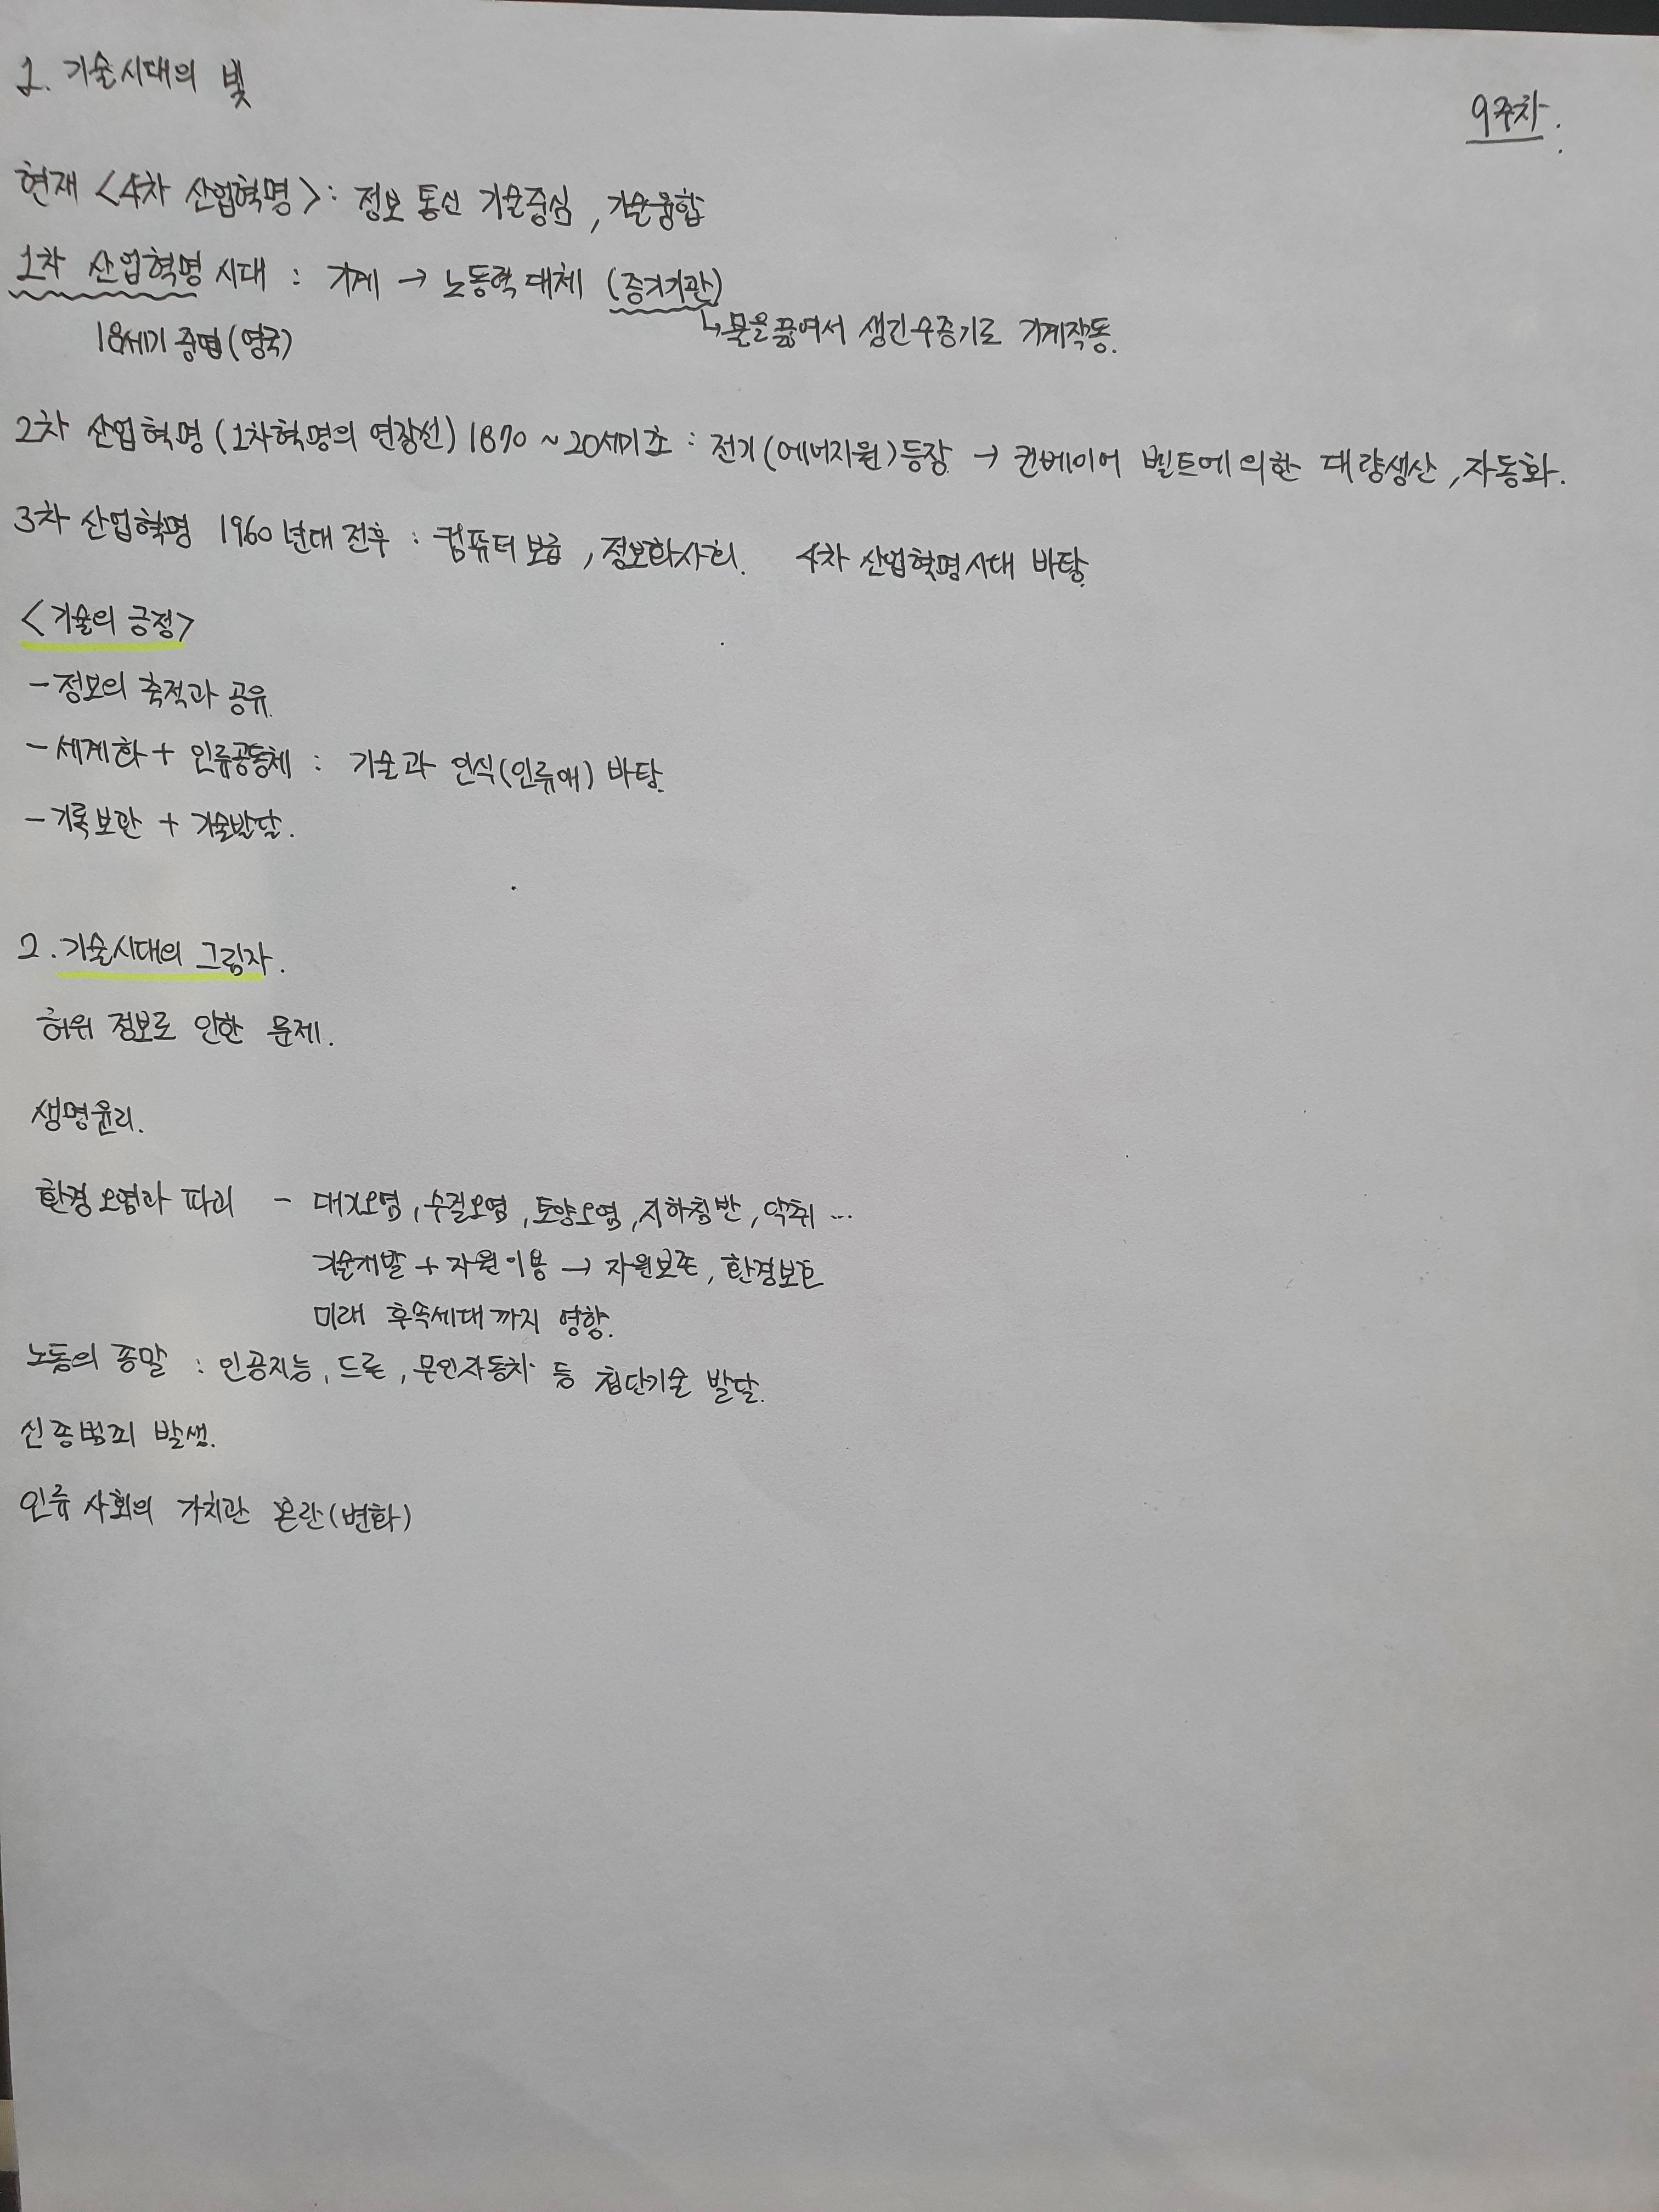 1. 기술시대의 빛
9주차.
현재 <4차 산업혁명> : 정보 통신 기술중심, 기술융합
1차 산업혁명 시대 : 기계 → 노동력 대체 (증기기관)
↳ 물을 끓여서 생긴 수증기로 기계작동.
18세기 중엽 (영국)
2차 산업혁명 (1차혁명의 연장선) 1870 ~ 20세기초 : 전기 (에너지원) 등장 → 컨베이어 벨트에 의한 대량생산, 자동화.
3차 산업혁명 1960년대 전후 : 컴퓨터 보급, 정보화사회. 4차 산업혁명 시대 바탕.
<기술의 긍정>
- 정보의 축적과 공유.
- 세계화 + 인류공동체 : 기술과 인식(인류애) 바탕.
- 기록보관 + 기술발달.
2. 기술시대의 그림자.
허위 정보로 인한 문제.
생명윤리.
환경오염과 파괴 - 대기오염, 수질오염, 토양오염, 지하침반, 악취 ...
기술개발 + 자원이용 → 자원보존, 환경보존
미래 후속세대까지 영향.
노동의 종말 : 인공지능, 드론, 무인자동차 등 첨단기술 발달.
신종범죄 발생.
인류 사회의 가치관 혼란(변화)